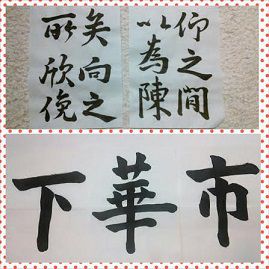 矣向之
所欣俛
仰之間
以為陳
下華市